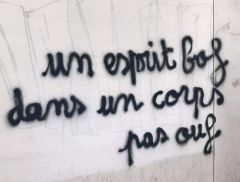 un esprit bof
dans un corps
pas ouf